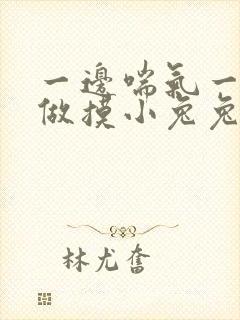 一邊喘氣一
做摸小兔兔
林尤奮